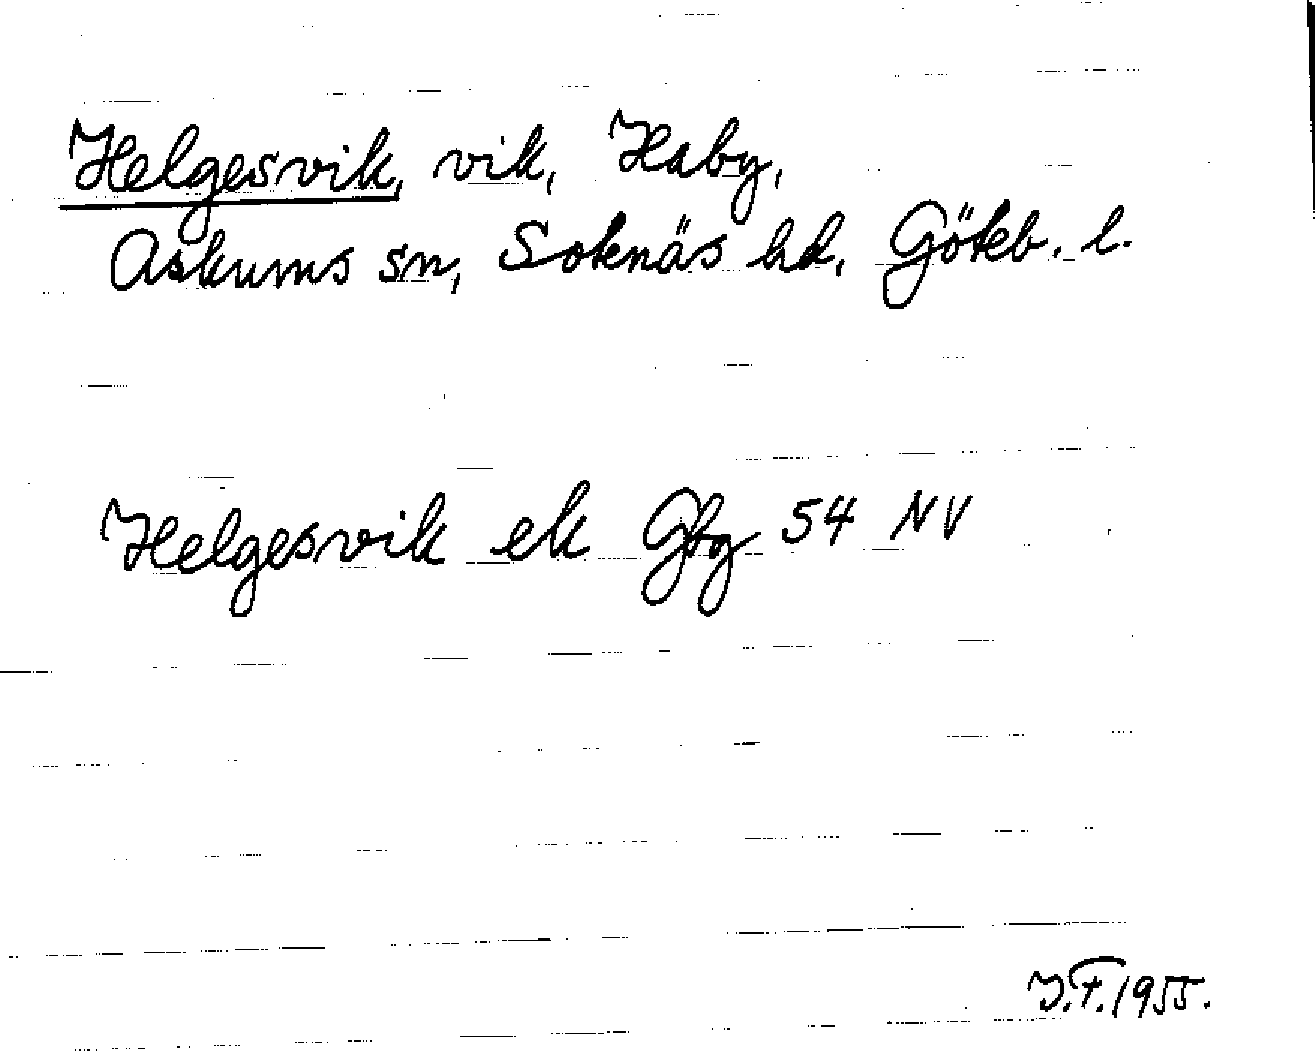 Helgesvik, vik, Haby,
Askums sn, Sotenäs hd, Göteb. l.
Helgesvik ek Gbg 54 NV
J.F. 1955.